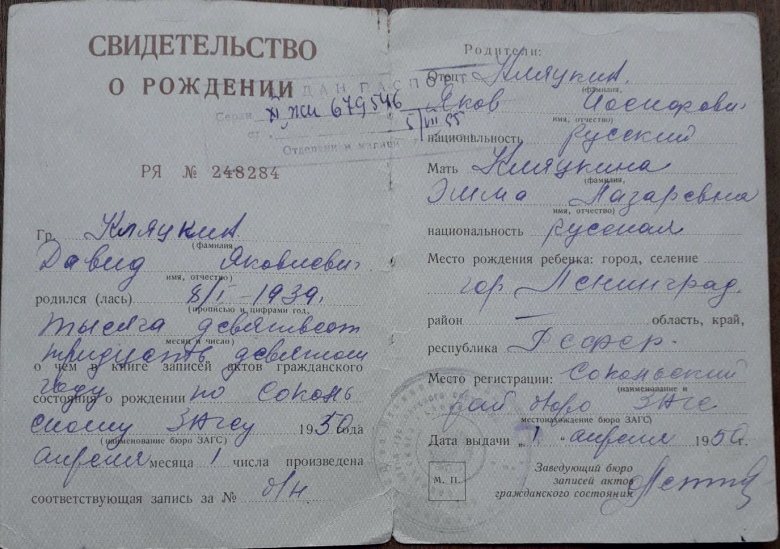 СВИДЕТЕЛЬСТВО
О РОЖДЕНИИ
ВЫДАН ПАСПОРТ
Серии XI ЖИ 679546
от 5/VIII 55
Отделением милиции
РЯ № 248284
Гр. Кляцкин
(фамилия,
Давид Яковлевич
имя, отчество)
родился (лась) 8/I-1939г.
(прописью и цифрами год,
тысяча девятьсот
месяц и число)
тридцать девятом
о чем в книге записей актов гражданского
году
состояния о рождении по Соколь
скому ЗАГСу 1950 года
(наименование бюро ЗАГС)
апреля месяца 1 числа произведена
соответствующая запись за № б/н
Родители:
Отец Кляцкин
(фамилия,
Яков Иосифович
имя, отчество)
национальность русский
Мать Кляцкина
(фамилия,
Эмма Лазаревна
имя, отчество)
национальность русская
Место рождения ребенка: город, селение
гор Ленинград
район — область, край,
республика РСФСР
Место регистрации: Сокольский
(наименование и
рай бюро ЗАГС
местонахождение бюро ЗАГС)
Дата выдачи „1" апреля 1950г.
Заведующий бюро
записей актов
М. П.
гражданского состояния